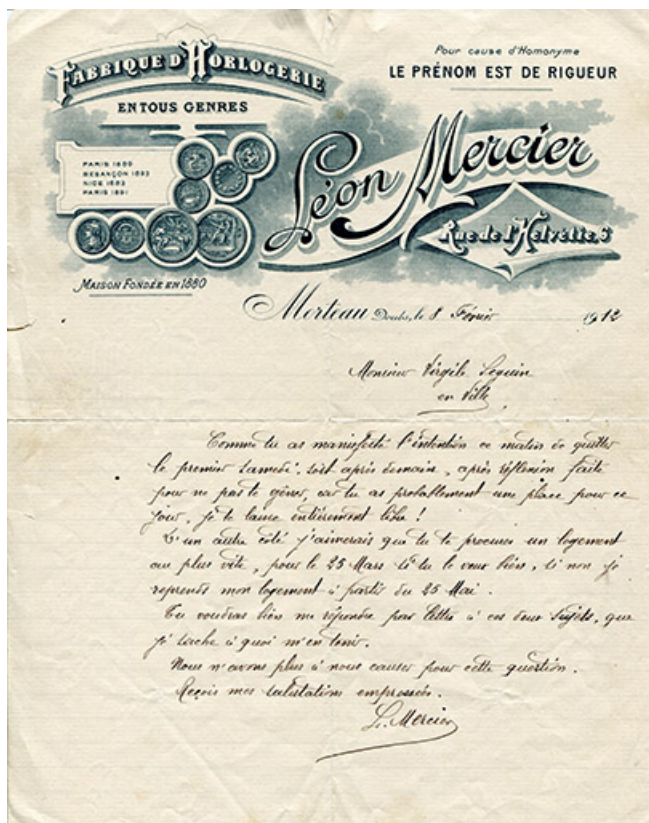 FABRIQUE D'HORLOGERIE
EN TOUS GENRES
Pour cause d'Homonyme
LE PRÉNOM EST DE RIGUEUR
PARIS 1890
BESANÇON 1893
NICE 1883
PARIS 1891
Léon Mercier
Rue de l'Helvétie, 6
MAISON FONDÉE EN 1880
Morteau Doubs, le 8 Février 1912
Monsieur Virgile Seguin
en Ville
Comme tu as manifesté l'intention ce matin de quitter
le premier Samedi, soit après demain, après réflexion faite
pour ne pas te gêner, car tu as probablement une place pour ce
jour, je te laisse entièrement libre !
D'un autre côté j'aimerais que tu te procures un logement
au plus vite, pour le 25 Mars si tu le veux bien, si non je
reprends mon logement à partir du 25 Mai.
Tu voudras bien me répondre par lettre à ces deux sujets, que
je sache à quoi m'en tenir.
Nous n'avons plus à nous causer pour cette question.
Reçois mes salutations empressées.
L. Mercier